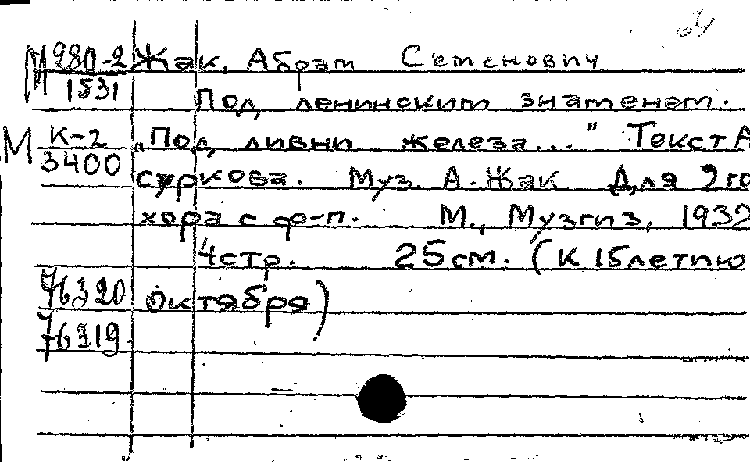 М 980-2 Жак, Абрам Семенович
1531 Под ленинским знаменем.
М К-2 „Под ливни железа..." Текст А
3400 суркова. Муз. А. Жак Для 2го
хора с ф-п. М., Музгиз, 1932
4стр. 25см. (К 15летию
76320 Октября)
76319.